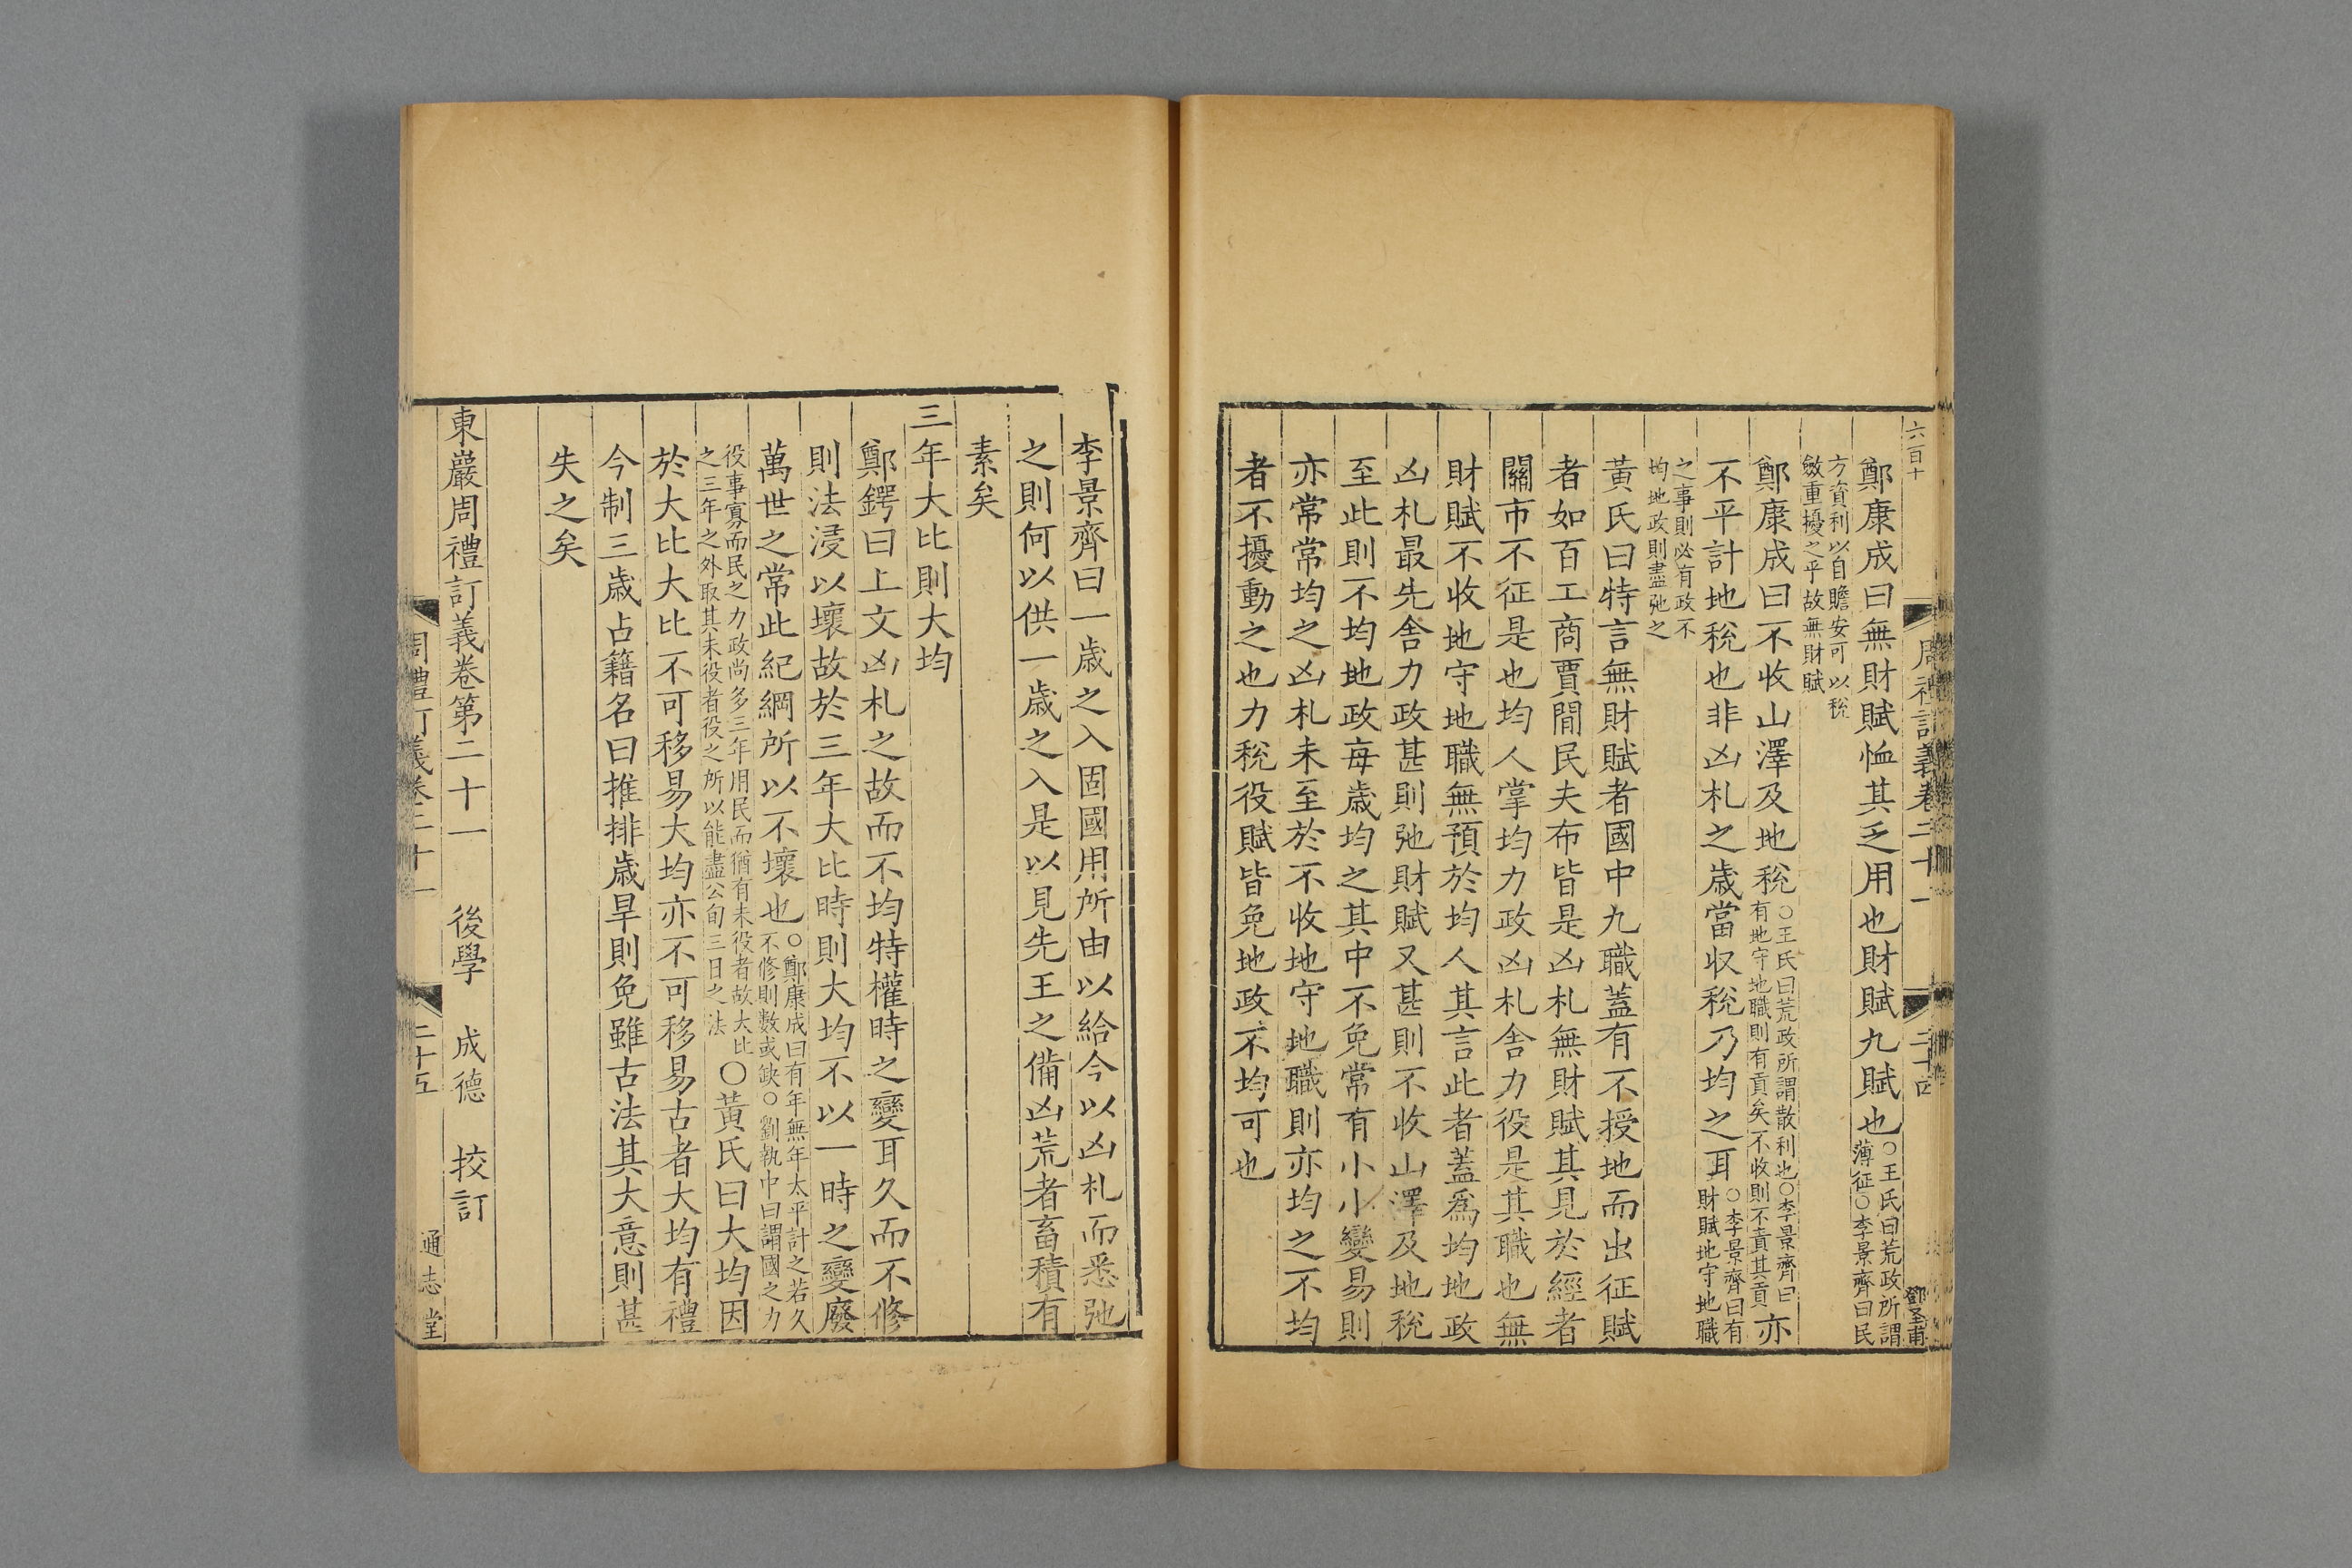 六百十
鄭康成曰無財賦恤其乏用也財賦九賦也○王氏曰荒政所謂薄征○李景齊曰民
方資利以自贍安可以稅斂重擾之乎故無財賦
鄭康成曰不收山澤及地稅○王氏曰荒政所謂散利也○李景齊曰有地守地職則有貢矣不收則不責其貢亦
不平計地稅也非凶札之歲當収稅乃均之耳○李景齊曰有財賦地守地職
之事則必有政不均地政則盡弛之
黃氏曰特言無財賦者國中九職蓋有不授地而出征賦
者如百工商賈閒民夫布皆是凶札無財賦其見於經者
關市不征是也均人掌均力政凶札舍力役是其職也無
財賦不收地守地職無預於均人其言此者蓋爲均地政
凶札最先舍力政甚則弛財賦又甚則不收山澤及地稅
至此則不均地政每歲均之其中不免常有小小變易則
亦常常均之凶札未至於不收地守地職則亦均之不均
者不擾動之也力稅役賦皆免地政不均可也
周禮訂義卷二十一
二十四
鄧圣甫
李景齊曰一歲之入固國用所由以給今以凶札而悉弛
之則何以供一歲之入是以見先王之備凶荒者畜積有
素矣
三年大比則大均
鄭鍔曰上文凶札之故而不均特權時之變耳久而不修
則法浸以壞故於三年大比時則大均不以一時之變廢
萬世之常此紀綱所以不壞也○鄭康成曰有年無年太平計之若久不修則數或缺○劉執中曰謂國之力
役事寡而民之力政尚多三年用民而猶有未役者故大比之三年之外取其未役者役之所以能盡公旬三日之法○黃氏曰大均因
於大比大比不可移易大均亦不可移易古者大均有禮
今制三歲占籍名曰推排歲旱則免雖古法其大意則甚
失之矣
東巖周禮訂義卷第二十一 後學 成德 挍訂
周禮訂義卷二十一
二十五
通志堂